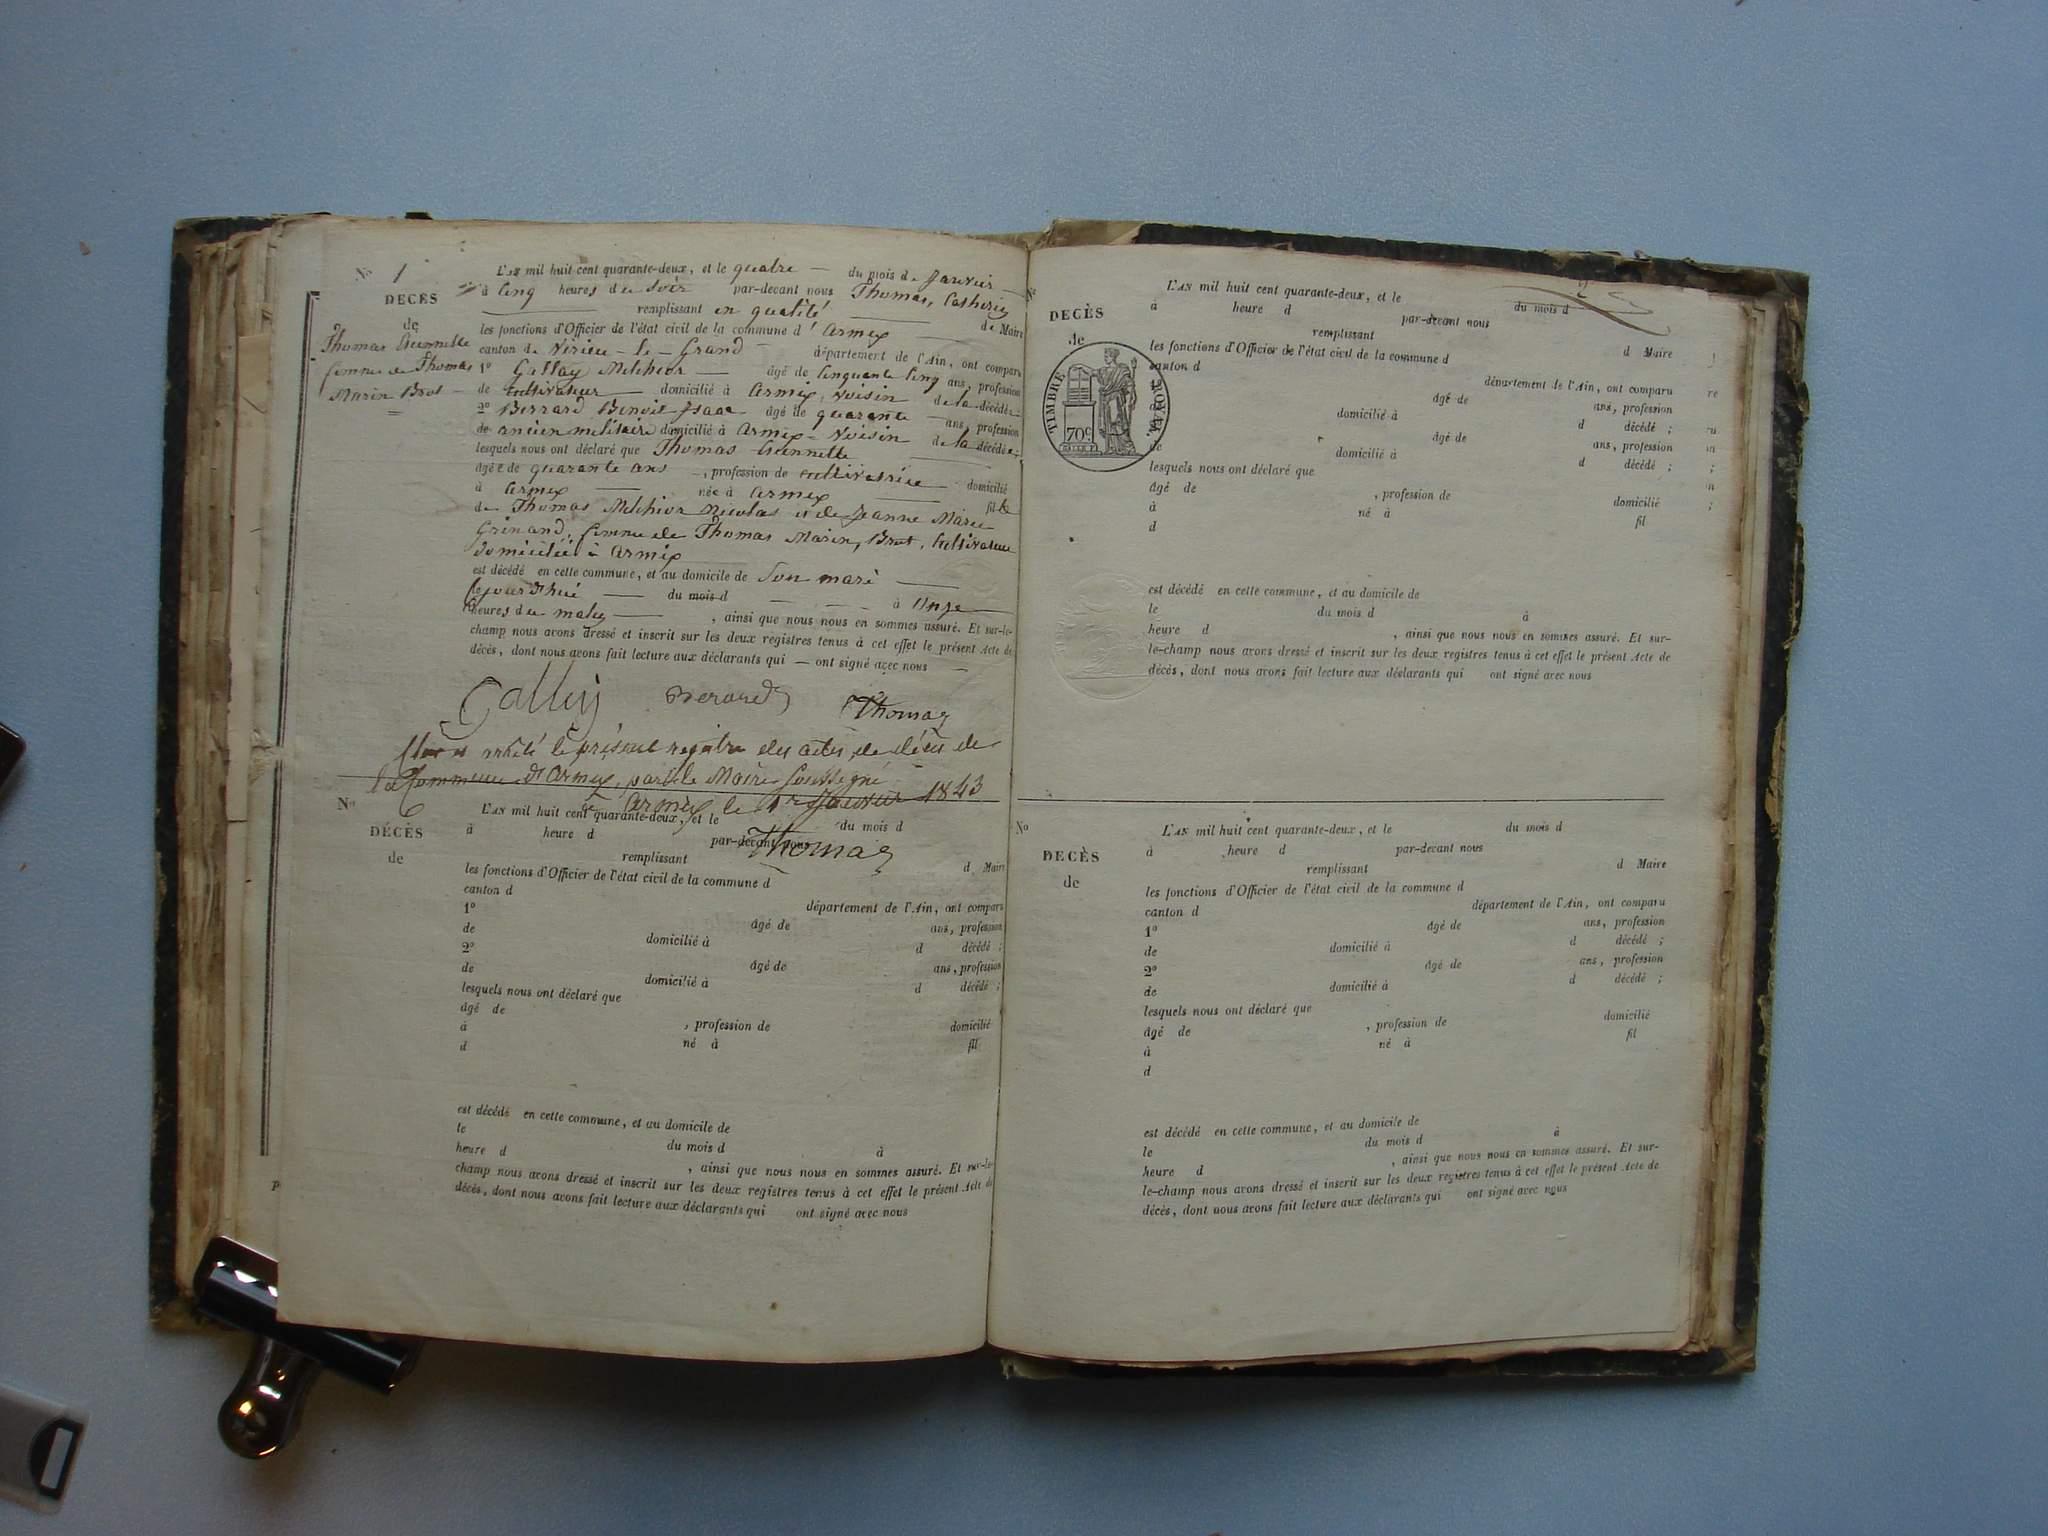 N° 1
DECÈS
de
Thomas
femme de Thomas
Marin Brot
L'AN mil huit cent quarante-deux, et le quatre — du mois de Janvier
à Cinq heures du Soir par-devant nous Thomas,
remplissant en qualité de Maire
les fonctions d'Officier de l'état civil de la commune d'Armix
canton de Virieu-le-Grand département de l'Ain, ont comparu
1° Gallay Melchior — âgé de Cinquante Cinq ans, profession
de Cultivateur — domicilié à Armix, voisin de la décédée
2° Berrard Benoit Isaac âgé de quarante — ans, profession
de ancien militaire domicilié à Armix - Voisin de la décédée ;
lesquels nous ont déclaré que Thomas
âgée de quarante ans —, profession de cultivatrice domicilié
à Armix — née à Armix — fille
de Thomas Melchior Nicolas et de Jeanne Marie
Grinand, femme de Thomas Marin, Brot, Cultivateur
domicilié à Armix
est décédé en cette commune, et au domicile de Son mari —
Cejourd'hui — du mois d — à Onze —
heures du matin —, ainsi que nous nous en sommes assuré. Et sur-le-
champ nous avons dressé et inscrit sur les deux registres tenus à cet effet le présent Acte de
décès, dont nous avons fait lecture aux déclarants qui — ont signé avec nous —
Gallay Berard Thomas
Clos et arrêté le présent registre des actes de décès de
la Commune d'Armix, par le Maire Soussigné
Armix le 1er Janvier 1843
Thomas
N°
DÉCÈS
de
L'AN mil huit cent quarante-deux, et le du mois d
à heure d par-devant nous
remplissant d Maire
les fonctions d'Officier de l'état civil de la commune d
canton d département de l'Ain, ont comparu
1° âgé de ans, profession
de domicilié à d décédé ;
2° âgé de ans, profession
de domicilié à d décédé ;
lesquels nous ont déclaré que
âgé de , profession de domicilié
à né à fil
d
est décédé en cette commune, et au domicile de
le du mois d à
heure d , ainsi que nous nous en sommes assuré. Et sur-le-
champ nous avons dressé et inscrit sur les deux registres tenus à cet effet le présent Acte de
décès, dont nous avons fait lecture aux déclarants qui ont signé avec nous
N°
DECÈS
de
TIMBRE ROYAL
70c
L'AN mil huit cent quarante-deux, et le du mois d
à heure d par-devant nous
remplissant d Maire
les fonctions d'Officier de l'état civil de la commune d
canton d département de l'Ain, ont comparu
âgé de ans, profession
domicilié à d décédé ;
âgé de ans, profession
de domicilié à d décédé ;
lesquels nous ont déclaré que
âgé de , profession de domicilié
à né à fil
d
est décédé en cette commune, et au domicile de
le du mois d à
heure d , ainsi que nous nous en sommes assuré. Et sur-
le-champ nous avons dressé et inscrit sur les deux registres tenus à cet effet le présent Acte de
décès, dont nous avons fait lecture aux déclarants qui ont signé avec nous
N°
DECÈS
de
L'AN mil huit cent quarante-deux, et le du mois d
à heure d par-devant nous
remplissant d Maire
les fonctions d'Officier de l'état civil de la commune d
canton d département de l'Ain, ont comparu
1° âgé de ans, profession
de domicilié à d décédé ;
2° âgé de ans, profession
de domicilié à d décédé ;
lesquels nous ont déclaré que
âgé de , profession de domicilié
à né à fil
d
est décédé en cette commune, et au domicile de
le du mois d à
heure d , ainsi que nous nous en sommes assuré. Et sur-
le-champ nous avons dressé et inscrit sur les deux registres tenus à cet effet le présent Acte de
décès, dont nous avons fait lecture aux déclarants qui ont signé avec nous